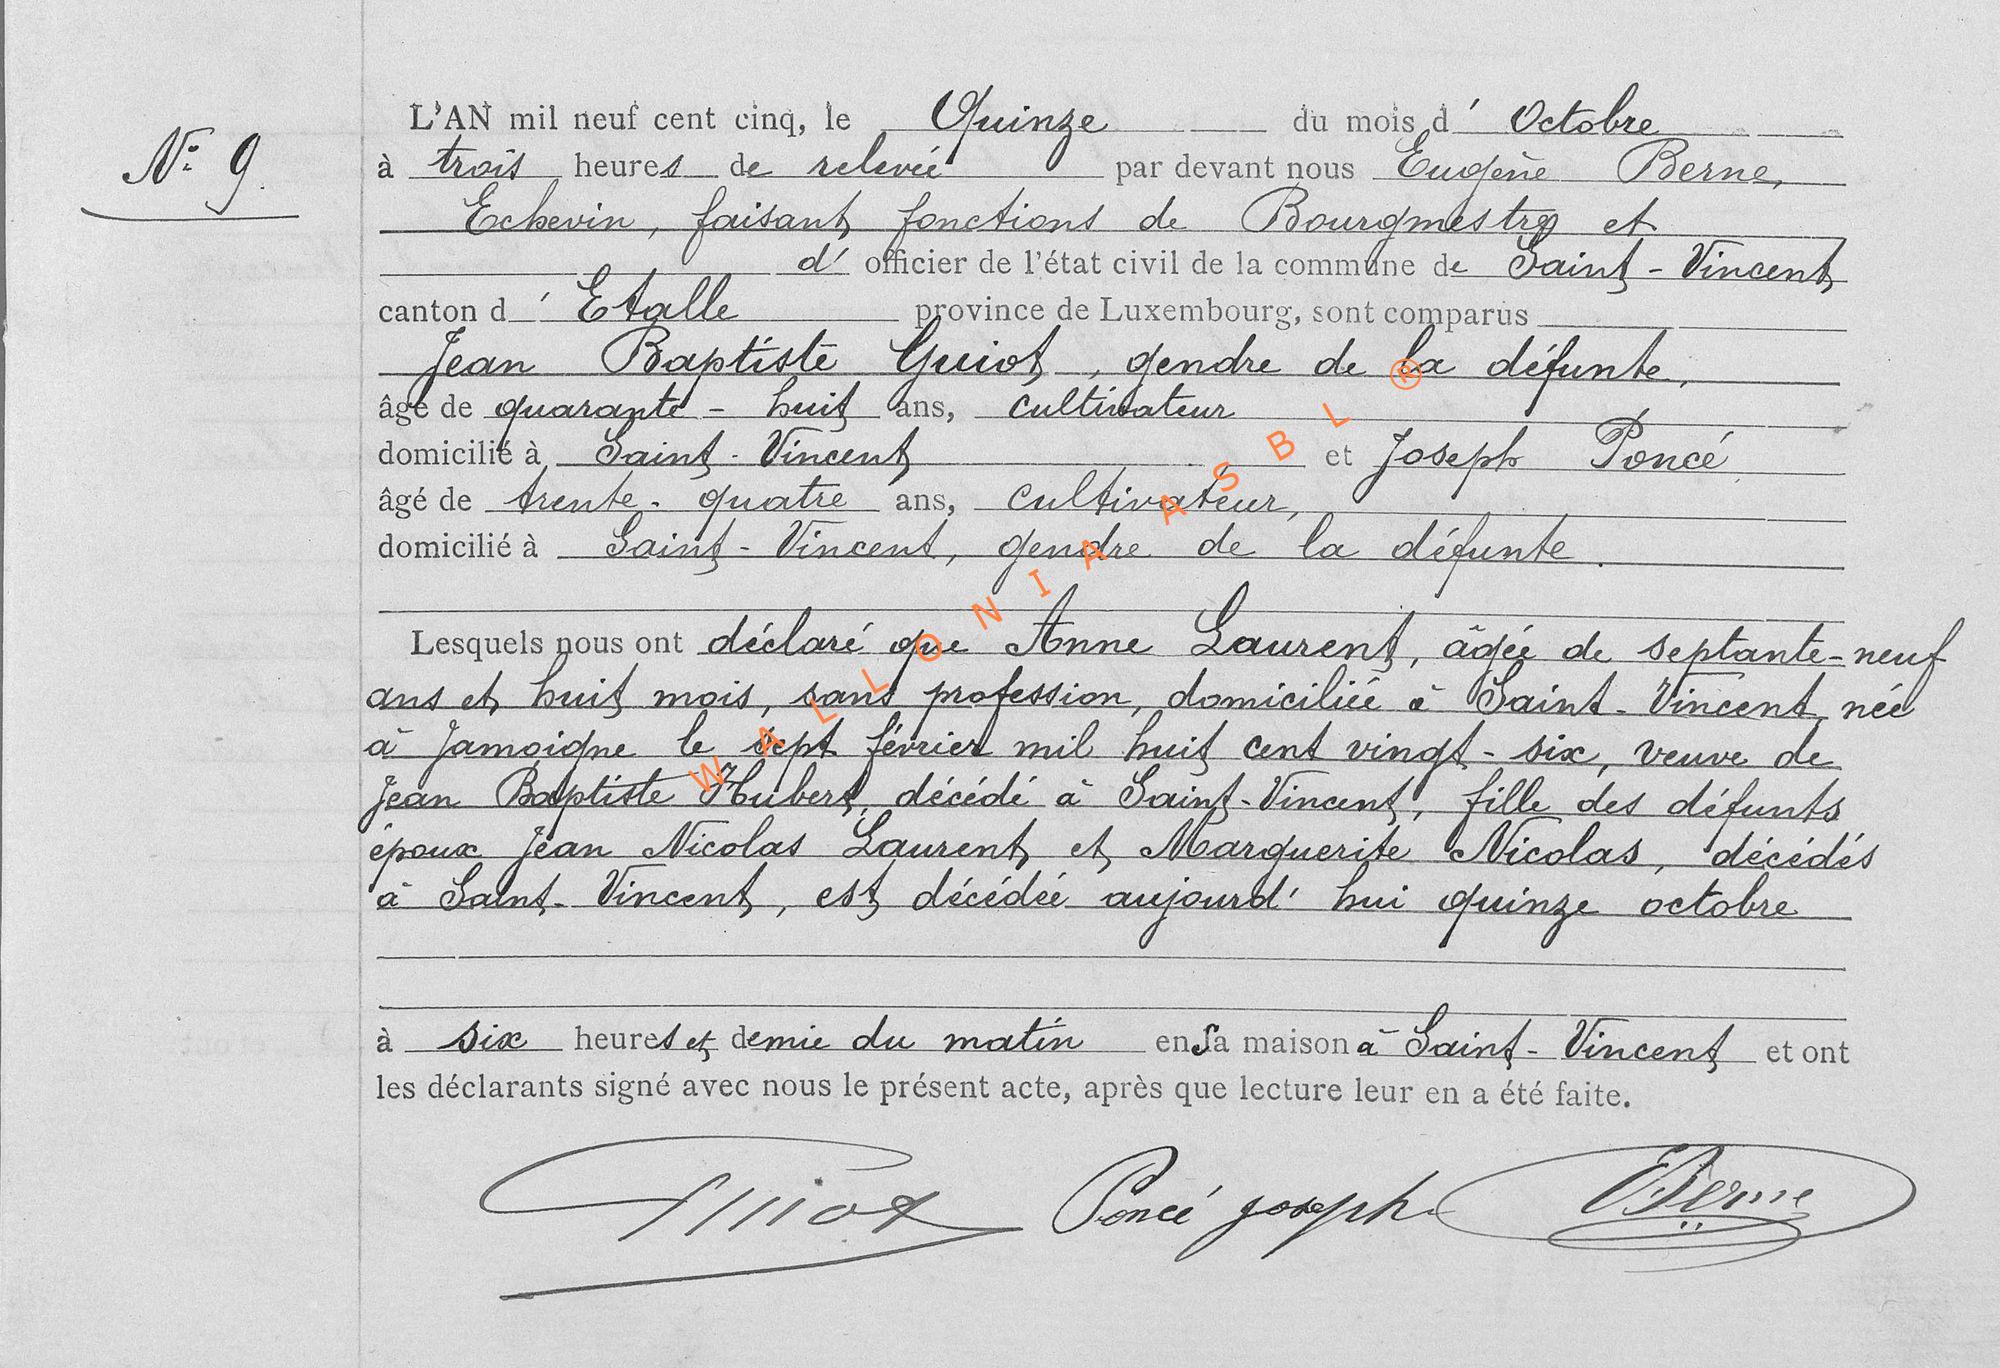 N° 9.
L'AN mil neuf cent cinq, le Quinze du mois d' Octobre
à trois heures de relevée par devant nous Eugène Berne,
Echevin, faisant fonctions de Bourgmestre et
d' officier de l'état civil de la commune de Saint-Vincent
canton d' Etalle province de Luxembourg, sont comparus
Jean Baptiste Guiot, gendre de la défunte,
âgé de quarante-huit ans, cultivateur
domicilié à Saint-Vincent et Joseph Poncé
âgé de trente-quatre ans, cultivateur,
domicilié à Saint-Vincent, gendre de la défunte.
Lesquels nous ont déclaré que Anne Laurent, âgée de septante-neuf
ans et huit mois, sans profession, domiciliée à Saint-Vincent, née
à Jamoigne le sept février mil huit cent vingt-six, veuve de
Jean Baptiste Hubert, décédé à Saint-Vincent, fille des défunts
époux Jean Nicolas Laurent et Marguerite Nicolas, décédés
à Saint-Vincent, est décédée aujourd'hui quinze octobre
à six heures et demie du matin en sa maison à Saint-Vincent et ont
les déclarants signé avec nous le présent acte, après que lecture leur en a été faite.
Guiot Poncé joseph EBerne
WALLONIA ASBL ®